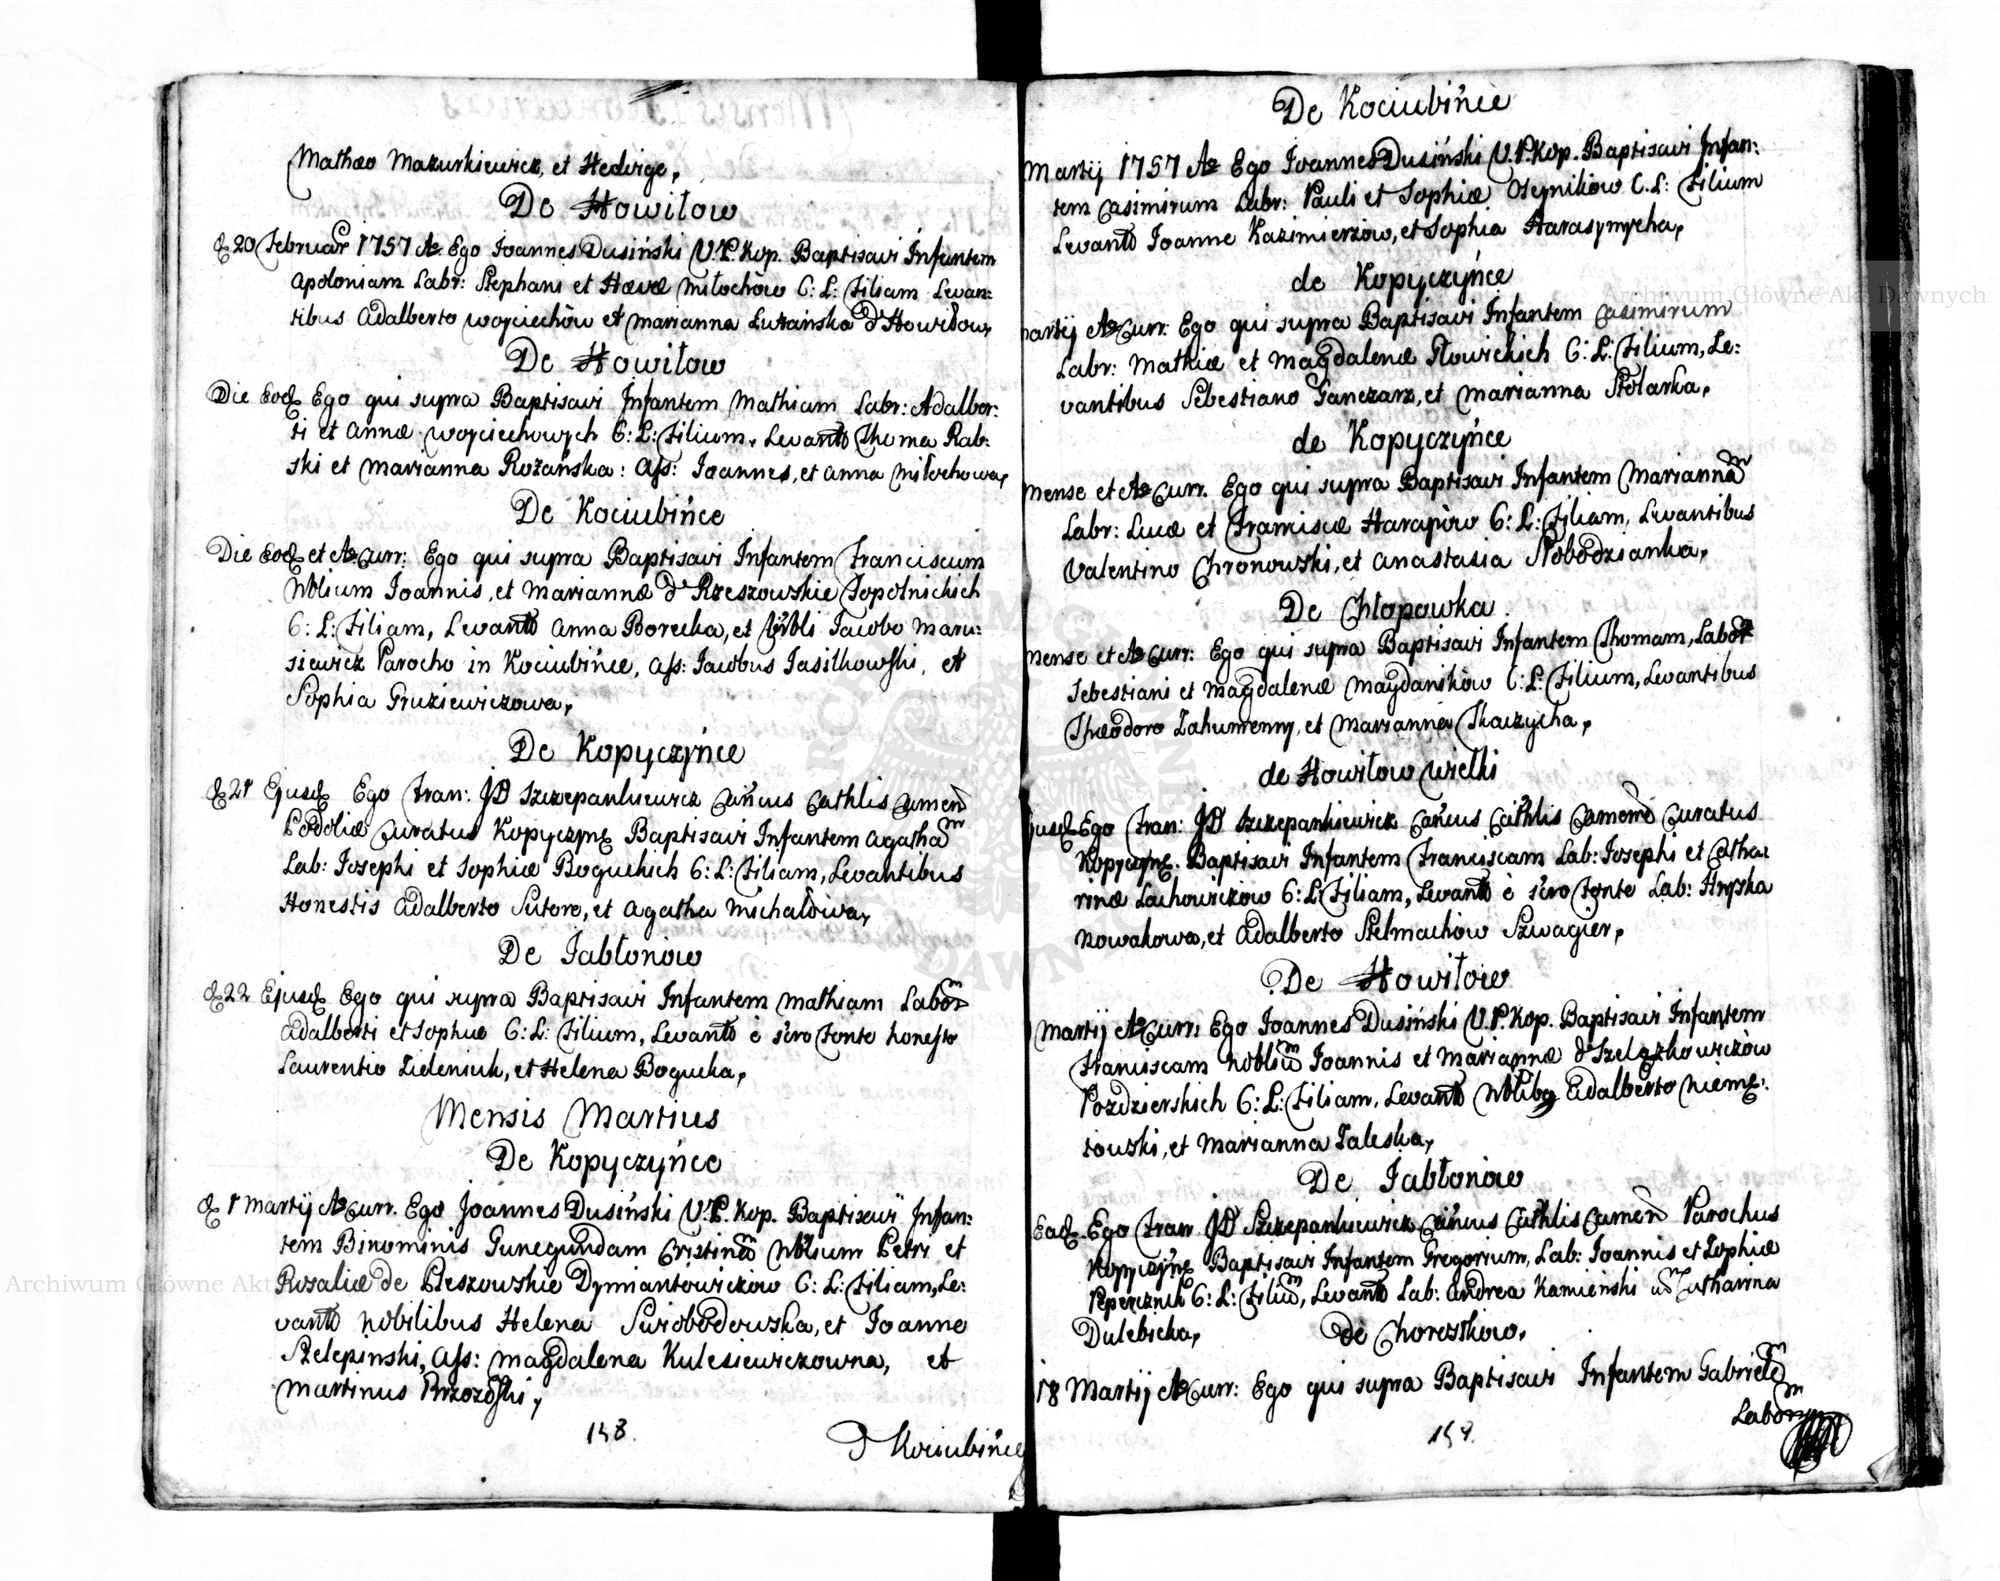 Mathæo Mazurkiewicz, et Hedvige,
De Howilow
d 20 Februar 1757 Ao Ego Joannes Dusiński V.P. Kop. Baptisavi Infantem
Apoloniam Labr: Stephani et Hævæ Miłochow C: L: Filiam Levan:
tibus Adalberto Woyciechów et Marianna Luzańska d Howilow,
De Howilow
Die Eod Ego qui supra Baptisavi Infantem Mathiam Labr: Adalber:
ti et Annæ Woyciechowych C: L: Filium, Levantb Thoma Rab:
ski et Marianna Rozańska: Ass: Joannes, et Anna Miłochowa,
De Kociubińce
Die Eod et Ao Curr: Ego qui supra Baptisavi Infantem Franciscum
Nblium Joannis, et Mariannæ d Rzeszowskie Sopotnickich
C: L: Filiam, Levantb Anna Borecka, et Jacobo Maru:
siewicz Parocho in Kociubińce, Ass: Jacobus Jasilkowski, et
Sophia Gruziewiczowa,
De Kopyczyńce
d 21 Ejusd Ego Fran: JD Szczepankiewicz Cań'cus Cathlis Camen
Podoliæ Curatus Kopyczyne Baptisavi Infantem Agatham
Lab: Josephi et Sophiæ Boguckich C: L: Filiam, Levantibus
Honestis Adalberto Sutore, et Agatha Michałowa,
De Jabłonow
d 22 Ejusd Ego qui supra Baptisavi Infantem Mathiam Laborm
Adalberti et Sophiæ C: L: Filium, Levantb è s'cro Fonte honesto
Laurentio Zieleniuk, et Helena Bogucka,
Mensis Martius
De Kopyczyńce
d 1 Martij Ao Curr. Ego Joannes Dusiński V.P. Kop. Baptisavi Infan:
tem Binominis Cunegundam Cristinā Nblium Petri et
Rosaliæ de Pleszowskie Dymiantowiczow C: L: Filiam, Le:
vantb Nobilibus Helena Swiobodowska, et Joanne
Szelepinski, Ass: Magdalena Kulesiewiczowna, et
Martinus Brzozoski,
148.
d Kociubińce
De Kociubińce
Martij 1757 Ao Ego Joannes Dusiński V.P. Kop. Baptisavi Infan:
tem Casimirum Labr: Pauli et Sophiæ Oleynikow C. L: Filium
Levantb Joanne Kazimierzow, et Sophia Harasymycha,
de Kopyczyńce
Martij Ao Curr: Ego qui supra Baptisavi Infantem Casimirum
Labr: Mathiæ et Magdalenæ Słowickich C: L: Filium, Le:
vantibus Sebestiano Ganczarz, et Marianna Stolarka,
de Kopyczyńce
mense et Ao Curr. Ego qui supra Baptisavi Infantem Mariannam
Labr: Lucæ et Franciscæ Harapów C: L: Filiam, Levantibus
Valentino Chronowski, et Anastasia Słobodzianka,
De Chłopowka
mense et Ao Curr: Ego qui supra Baptisavi Infantem Thomam, Labor
Sebestiani et Magdalenæ Maydanikòw C: L: Filium, Levantibus
Theodoro Zahumenny, et Marianna Tkaczycha,
de Howilow wielki
Ejusd Ego Fran: JD Szczepankiewicz Cań'cus Cathlis Camene Curatus
Kopyczyne. Baptisavi Infantem Franciscam Lab: Josephi et Catha:
rinæ Lachowiczow C: L: Filiam, Levantb è s'cro Fonte Lab: Hryska
Nowakowa, et Adalberto Stelmachòw Szwagier,
De Howilow
Martij Ao Curr: Ego Joannes Dusiński V.P. Kop. Baptisavi Infantem
Franciscam Noblium Joannis et Mariannæ d Szelązkowiczòw
Pozdzierskich C: L: Filiam, Levantb Nblibq Adalberto Nieme:
towski, et Marianna Zaleska,
De Jabłonow
Ead Ego Fran JD Szczepankiewicz Cań'cus Cathlis Camen Parochus
Kopyczyne Baptisavi Infantem Gregorium, Lab: Joannis et Sophiæ
Peperznik C: L: Filiūm, Levantb Lab: Andrea Kamienski Catharina
Dulebicka, de Chorostkow,
18 Martij Ao Curr: Ego qui supra Baptisavi Infantem Gabrielem
Laborum
149.
Archiwum Główne Akt Dawnych